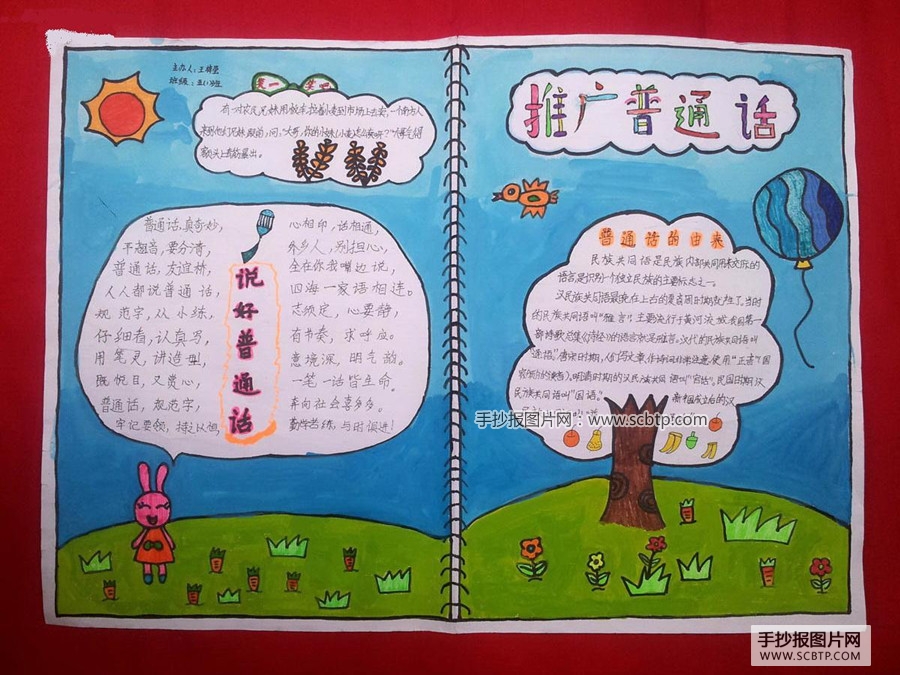 主办人：王锦莹
班级：五(1)班
笑一笑吧
有一对农民兄妹用板车拉着小麦到市场上去卖，一个南方人
来到他们兄妹跟前，问：“大哥，你的小妹(小麦)怎么卖呀？”大哥气得
额头上青筋暴出。
说好普通话
普通话，真奇妙，
不翘舌，要分清，
普通话，友谊桥，
人人都说普通话，
规范字，从小练，
仔细看，认真写，
用笔灵，讲造型，
既悦目，又赏心，
普通话，规范字，
牢记要领，持之以恒，
心相印，话相通，
外乡人，别担心，
全在你我嘴边说，
四海一家语相连。
志须定，心要静，
有节奏，求呼应。
意境深，明气韵。
一笔一话皆生命。
奔向社会喜多多。
勤学苦练，与时俱进！
推广普通话
普通话的由来
民族共同语是民族内部共同用来交际的
语言，是识别一个独立民族的主要标志之一。
汉民族共同语最晚在上古的夏商周时期就产生了，当时
的民族共同语叫“雅言”，主要流行于黄河流域，我国第一
部诗歌总集《诗经》的语言就是雅言。汉代的民族共同语叫
“通语”。唐宋时期，人们写文章、作诗词非常注意使用“正音”（国
家颁布的读音），明清时期的汉民族共同语叫“官话”。民国时期汉
民族共同语叫“国语。
新中国成立后的汉
手抄报图片网：www.scbtp.com
手抄报图片网
WWW.SCBTP.COM